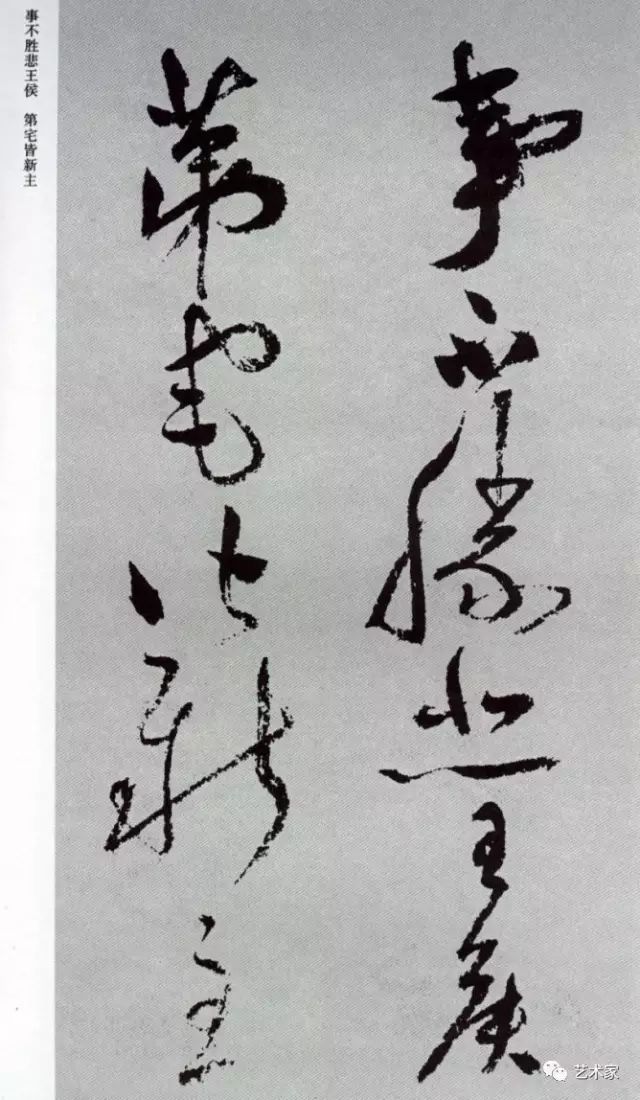 事不勝悲王侯
第宅皆新主
事不胜悲王侯　第宅皆新主
艺术家